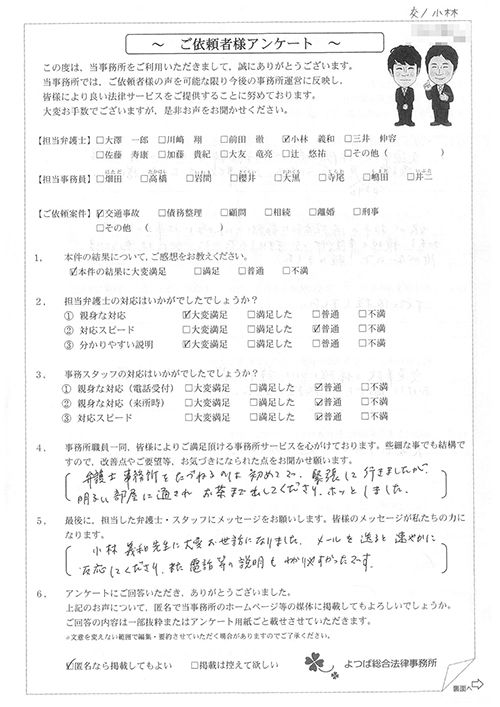 交/小林
～ ご依頼者様アンケート ～
この度は、当事務所をご利用いただきまして、誠にありがとうございます。
当事務所では、ご依頼者様の声を可能な限り今後の事務所運営に反映し、
皆様により良い法律サービスをご提供することに努めております。
大変お手数でございますが、是非お声をお聞かせください。
【担当弁護士】□大澤 一郎 □川﨑 翔 □前田 徹 ☑小林 義和 □三井 伸容
□佐藤 寿康 □加藤 貴紀 □大友 竜亮 □辻 悠祐 □その他（ ）
【担当事務員】□畑田 □高橋 □岩間 □櫻井 □大黒 □寺尾 □嶋田 □井二
【ご依頼案件】☑交通事故 □債務整理 □顧問 □相続 □離婚 □刑事
□その他（ ）
1． 本件の結果について、ご感想をお教えください。
☑本件の結果に大変満足 □満足 □普通 □不満
2． 担当弁護士の対応はいかがでしたでしょうか？
① 親身な対応 ☑大変満足 □満足した □普通 □不満
② 対応スピード □大変満足 □満足した ☑普通 □不満
③ 分かりやすい説明 ☑大変満足 □満足した □普通 □不満
3． 事務スタッフの対応はいかがでしたでしょうか？
① 親身な対応（電話受付） □大変満足 □満足した ☑普通 □不満
② 親身な対応（来所時） □大変満足 □満足した ☑普通 □不満
③ 対応スピード □大変満足 □満足した ☑普通 □不満
4． 事務所職員一同、皆様によりご満足頂ける事務所サービスを心がけております。些細な事でも結構で
すので、改善点やご要望等、お気づきになられた点をお聞かせ願います。
弁護士事務所をたづねるのは初めてで、緊張して行きましたが、
明るい部屋に通され お茶まで出してくださり、ホッとしました。
5． 最後に、担当した弁護士・スタッフにメッセージをお願いします。皆様のメッセージが私たちの力に
なります。
小林義和先生に大変お世話になりました。メールを送ると速やかに
反応してくださり、また電話等の説明もわかりやすかったです。
6． アンケートにご回答いただき、ありがとうございました。
上記のお声について、匿名で当事務所のホームページ等の媒体に掲載してもよろしいでしょうか。
ご回答の内容は一部抜粋またはアンケート用紙ごと載せさせていただきます。
※文意を変えない範囲で編集・要約させていただく場合がありますのでご了承ください。
☑匿名なら掲載してもよい □掲載は控えて欲しい よつば総合法律事務所
裏面へ